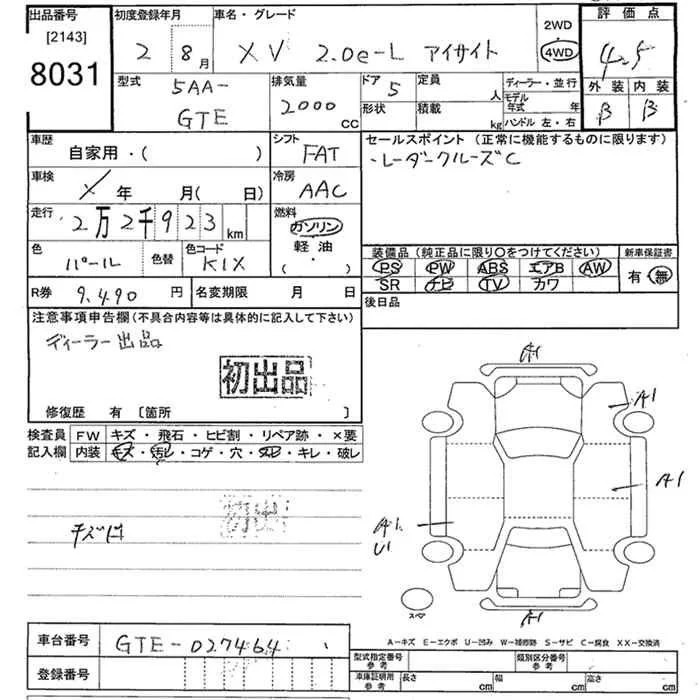 出品番号
[2143]
8031
初度登録年月
2 8月
車名・グレード
XV 2.0e-L アイサイト
2WD
4WD
評価点
4.5
外装 内装
B B
型式
5AA-
GTE
排気量
2000
CC
ドア 5
形状
定員
人
積載
kg
ディーラー・並行
モデル
年式 年
ハンドル 左・右
車歴
自家用・( )
シフト
FAT
セールスポイント (正常に機能するものに限ります)
・レーダークルーズC
車検
X 年 月(日)
冷房
AAC
走行
2万2千923
km
燃料
ガソリン
軽油
( ・ )
色
パール
色替
色コード
K1X
装備品 (純正品に限り○をつけてください)
PS PW ABS エアB AW
SR ナビ TV カワ
新車保証書
有・無
R券 9,490 円
名変期限 月 日
後日品
注意事項申告欄 (不具合内容等は具体的に記入して下さい)
ディーラー出品
初出品
修復歴 有 〔箇所 〕
検査員
記入欄
FW キズ・飛石・ヒビ割・リペア跡・×要
内装 キズ・汚レ・コゲ・穴・スレ・キレ・破レ
初出
キズ凹
A1
A1
A1
A1
U1
A1
スペア
A-キズ E-エクボ U-凹み W-補修跡 S-サビ C-腐食 XX-交換済
車台番号
GTE-027464
登録番号
型式指定番号
参考
類別区分番号
参考
車庫証明用
参考
長さ cm
幅 cm
高さ cm